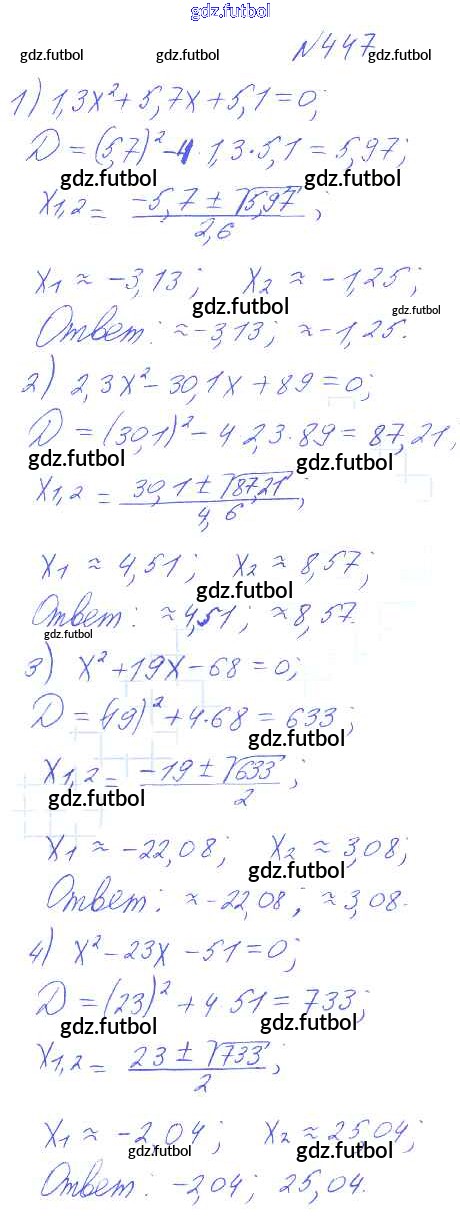 gdz.futbol
№447
gdz.futbol gdz.futbol gdz.futbol
1) 1,3x²+5,7x+5,1=0;
D=(5,7)²-4·1,3·5,1=5,97;
gdz.futbol gdz.futbol
x₁,₂= (-5,7±√5,97)/2,6;
x₁≈-3,13; x₂≈-1,25;
gdz.futbol gdz.futbol
Ответ: ≈-3,13; ≈-1,25.
2) 2,3x²-30,1x+89=0;
D=(30,1)²-4 2,3·89=87,21;
gdz.futbol gdz.futbol
x₁,₂= (30,1±√87,21)/4,6;
x₁≈4,51; x₂≈8,57;
gdz.futbol
Ответ: ≈4,51; ≈8,57.
gdz.futbol
3) x²+19x-68=0;
D=(19)²+4·68=633;
gdz.futbol
x₁,₂= (-19±√633)/2;
gdz.futbol
x₁≈-22,08; x₂≈3,08;
gdz.futbol
Ответ: ≈-22,08; ≈3,08.
4) x²-23x-51=0;
D=(23)²+4·51=733;
gdz.futbol gdz.futbol
x₁,₂= (23±√733)/2;
x₁≈-2,04; x₂≈25,04;
gdz.futbol gdz.futbol
Ответ: -2,04; 25,04.